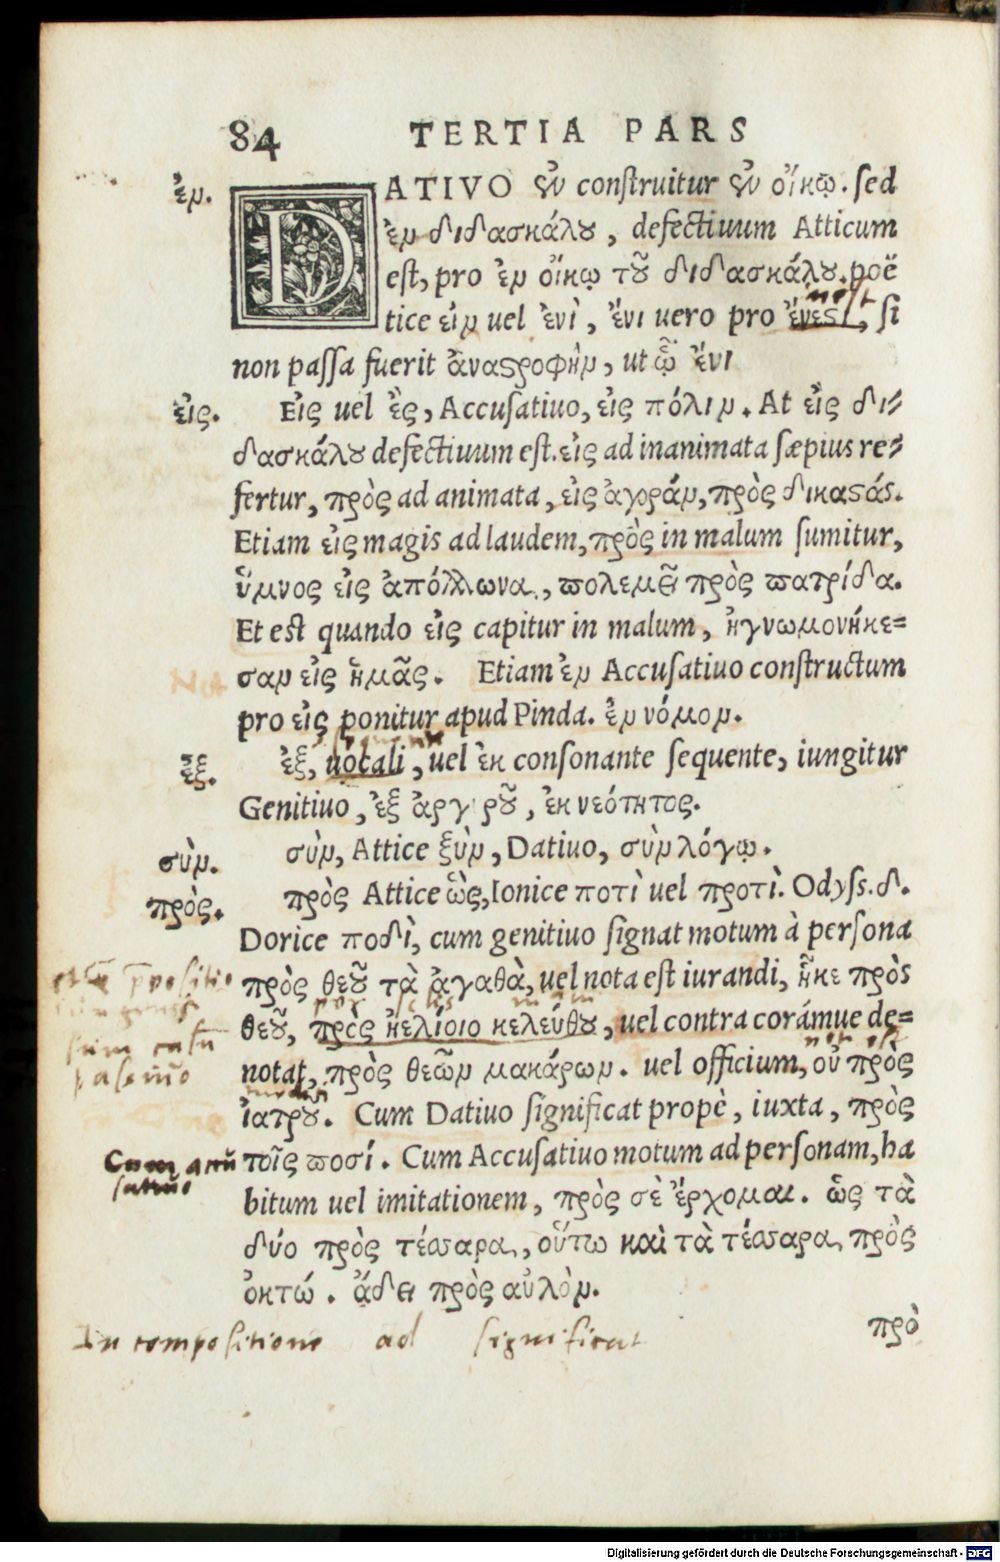 84 TERTIA PARS
ἐν. DATIVO ἐν construitur ἐν οἴκῳ. sed
ἐν διδασκάλου, defectiuum Atticum
est, pro ἐν οἴκῳ τοῦ διδασκάλου. poë
inest
tice εἰν uel ἐνὶ, ἔνι uero pro ἔνεστι, si
non passa fuerit ἀναστροφὴν, ut ᾧ ἔνι
εἰς. Εἰς uel ἐς, Accusatiuo, εἰς πόλιν. At εἰς δι-
δασκάλου defectiuum est. εἰς ad inanimata sæpius re-
fertur, πρὸς ad animata, εἰς ἀγορὰν, πρὸς δικαστάς.
Etiam εἰς magis ad laudem, πρὸς in malum sumitur,
ὕμνος εἰς ἀπόλλωνα, πολεμεῖ πρὸς πατρίδα.
Et est quando εἰς capitur in malum, ἠγνωμονήκε=
σαν εἰς ἡμᾶς. Etiam ἐν Accusatiuo constructum
pro εἰς ponitur apud Pinda. ἐν νόμον.
ἐξ. ἐξ, uocali, uel ἐκ consonante sequente, iungitur
Genitiuo, ἐξ ἀργυροῦ, ἐκ νεότητος.
σὺν. σὺν, Attice ξὺν, Datiuo, σὺν λόγῳ.
πρὸς. πρὸς Attice ὡς, Ionice ποτὶ uel προτὶ. Odyss. δ.
Dorice ποδὶ, cum genitiuo signat motum à persona
πρὸς θεοῦ τὰ ἀγαθὰ, uel nota est iurandi, ἧκε πρὸς
per solis uiam
θεοῦ, πρὸς ἠελίοιο κελεύθου, uel contra corámue de=
non est
notat, πρὸς θεῶν μακάρων. uel officium, οὐ πρὸς
medici
ἰατροῦ. Cum Datiuo significat propè, iuxta, πρὸς
Cum accu
satiuo
τοῖς ποσί. Cum Accusatiuo motum ad personam, ha
bitum uel imitationem, πρὸς σὲ ἔρχομαι. ὡς τὰ
δύο πρὸς τέσσαρα, οὕτω καὶ τὰ τέσσαρα πρὸς
ὀκτώ. ᾄδει πρὸς αὐλὸν.
πρὸ
In compositione ad significat
Digitalisierung gefördert durch die Deutsche Forschungsgemeinschaft - DFG